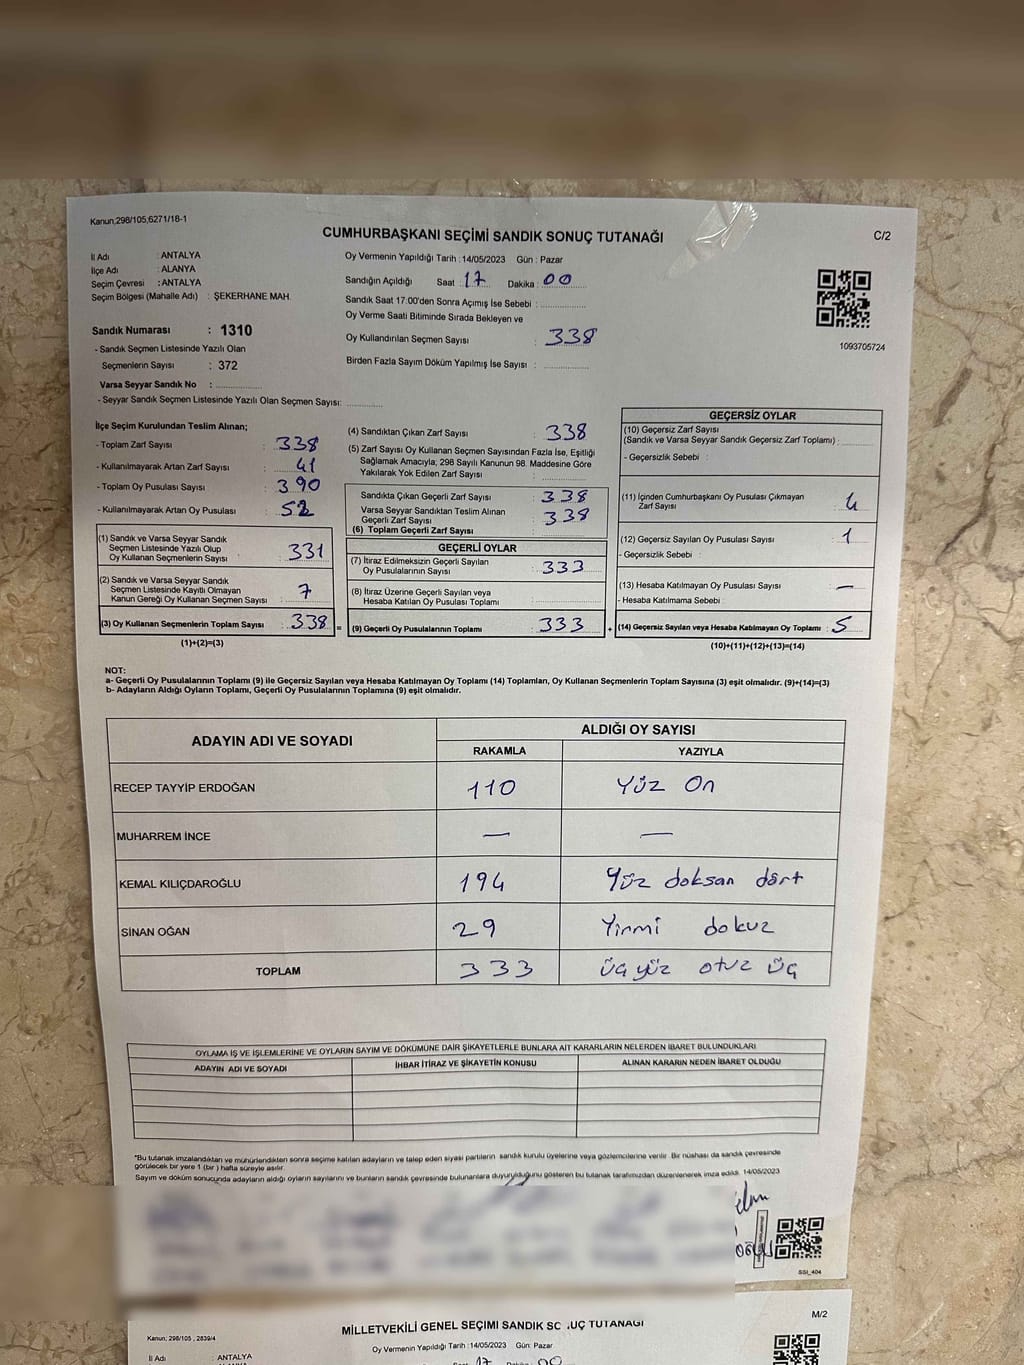 Kanun,298/105,6271/18-1
CUMHURBAŞKANI SEÇİMİ SANDIK SONUÇ TUTANAĞI
C/2
İl Adı : ANTALYA
İlçe Adı : ALANYA
Seçim Çevresi : ANTALYA
Seçim Bölgesi (Mahalle Adı) : ŞEKERHANE MAH.
Oy Vermenin Yapıldığı Tarih : 14/05/2023 Gün : Pazar
Sandığın Açıldığı Saat : 17 Dakika : 00
Sandık Saat 17:00'den Sonra Açımış İse Sebebi :
Oy Verme Saati Bitiminde Sırada Bekleyen ve
Oy Kullandırılan Seçmen Sayısı : 338
Birden Fazla Sayım Döküm Yapılmış İse Sayısı :
1093705724
Sandık Numarası : 1310
- Sandık Seçmen Listesinde Yazılı Olan
Seçmenlerin Sayısı : 372
Varsa Seyyar Sandık No :
- Seyyar Sandık Seçmen Listesinde Yazılı Olan Seçmen Sayısı:
İlçe Seçim Kurulundan Teslim Alınan;
- Toplam Zarf Sayısı : 338
- Kullanılmayarak Artan Zarf Sayısı : 41
- Toplam Oy Pusulası Sayısı : 390
- Kullanılmayarak Artan Oy Pusulası : 52
(1) Sandık ve Varsa Seyyar Sandık
Seçmen Listesinde Yazılı Olup
Oy Kullanan Seçmenlerin Sayısı : 331
(2) Sandık ve Varsa Seyyar Sandık
Seçmen Listesinde Kayıtlı Olmayan
Kanun Gereği Oy Kullanan Seçmen Sayısı : 7
(3) Oy Kullanan Seçmenlerin Toplam Sayısı : 338
(1)+(2)=(3)
(4) Sandıktan Çıkan Zarf Sayısı : 338
(5) Zarf Sayısı Oy Kullanan Seçmen Sayısından Fazla İse, Eşitliği
Sağlamak Amacıyla, 298 Sayılı Kanunun 98. Maddesine Göre
Yakılarak Yok Edilen Zarf Sayısı :
Sandıkta Çıkan Geçerli Zarf Sayısı : 338
Varsa Seyyar Sandıktan Teslim Alınan
Geçerli Zarf Sayısı : 338
(6) Toplam Geçerli Zarf Sayısı :
GEÇERLİ OYLAR
(7) İtiraz Edilmeksizin Geçerli Sayılan
Oy Pusulalarının Sayısı : 333
(8) İtiraz Üzerine Geçerli Sayılan veya
Hesaba Katılan Oy Pusulası Toplamı :
= (9) Geçerli Oy Pusulalarının Toplamı : 333
GEÇERSİZ OYLAR
(10) Geçersiz Zarf Sayısı
(Sandık ve Varsa Seyyar Sandık Geçersiz Zarf Toplamı) :
- Geçersizlik Sebebi :
(11) İçinden Cumhurbaşkanı Oy Pusulası Çıkmayan
Zarf Sayısı : 4
(12) Geçersiz Sayılan Oy Pusulası Sayısı : 1
- Geçersizlik Sebebi :
(13) Hesaba Katılmayan Oy Pusulası Sayısı : —
- Hesaba Katılmama Sebebi :
+ (14) Geçersiz Sayılan veya Hesaba Katılmayan Oy Toplamı : 5
(10)+(11)+(12)+(13)=(14)
NOT:
a- Geçerli Oy Pusulalarının Toplamı (9) ile Geçersiz Sayılan veya Hesaba Katılmayan Oy Toplamı (14) Toplamları, Oy Kullanan Seçmenlerin Toplam Sayısına (3) eşit olmalıdır. (9)+(14)=(3)
b- Adayların Aldığı Oyların Toplamı, Geçerli Oy Pusulalarının Toplamına (9) eşit olmalıdır.
ADAYIN ADI VE SOYADI
ALDIĞI OY SAYISI
RAKAMLA YAZIYLA
RECEP TAYYİP ERDOĞAN 110 Yüz On
MUHARREM İNCE — —
KEMAL KILIÇDAROĞLU 194 Yüz doksan dört
SİNAN OĞAN 29 Yirmi dokuz
TOPLAM 333 üç yüz otuz üç
OYLAMA İŞ VE İŞLEMLERİNE VE OYLARIN SAYIM VE DÖKÜMÜNE DAİR ŞİKAYETLERLE BUNLARA AİT KARARLARIN NELERDEN İBARET BULUNDUKLARI
ADAYIN ADI VE SOYADI İHBAR İTİRAZ VE ŞİKAYETİN KONUSU ALINAN KARARIN NEDEN İBARET OLDUĞU
*Bu tutanak imzalandıktan ve mühürlendikten sonra seçime katılan adayların ve talep eden siyasi partilerin sandık kurulu üyelerine veya gözlemcilerine verilir. Bir nüshası da sandık çevresinde
görülecek bir yere 1 (bir) hafta süreyle asılır.
Sayım ve döküm sonucunda adayların aldığı oyların sayılarını ve bunların sandık çevresinde bulunanlara duyurulduğunu gösteren bu tutanak tarafımızdan düzenlenerek imza edildi. 14/05/2023
SSI_404
Kanun; 298/105 , 2839/4
MİLLETVEKİLİ GENEL SEÇİMİ SANDIK SONUÇ TUTANAĞI
M/2
Oy Vermenin Yapıldığı Tarih :14/05/2023 Gün: Pazar
İl Adı : ANTALYA
17 00